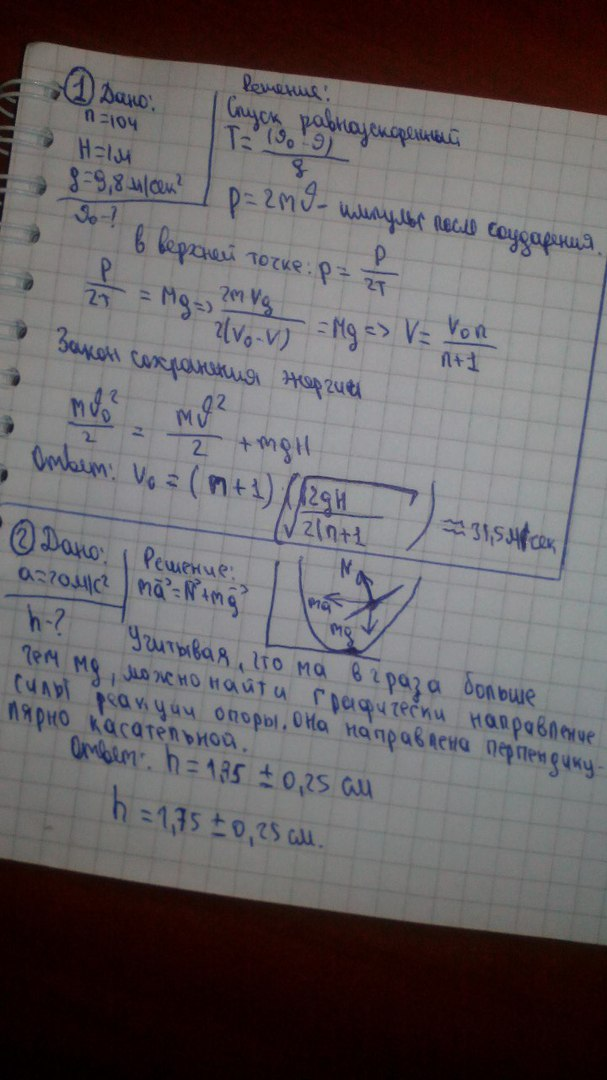 ① Дано:
n=104
H=1м
g=9,8м/сек²
υ₀-?
Решение:
Спуск равноускоренный
T= (υ₀-υ)/g
p=2mυ- импульс после соударения.
В верхней точке: p= P/2T
P/2T = Mg=> 2mVg/2(V₀-V) = Mg=> V= V₀n/n+1
Закон сохранения энергии
mυ₀²/2 = mυ²/2 +mgH
Ответ: V₀ = (n+1) (√2gH/2(n+1) ≈31,5м/сек
② Дано:
a=20м/с²
h-?
Решение:
ma⃗=N⃗+mg⃗
N
ma
mg
Учитывая, что ma в 2 раза больше
чем mg, можно найти графически направление
силы реакции опоры. Она направлена перпендику-
лярно касательной.
Ответ: h=1,75 ± 0,25 см
h=1,75 ± 0,25 см.